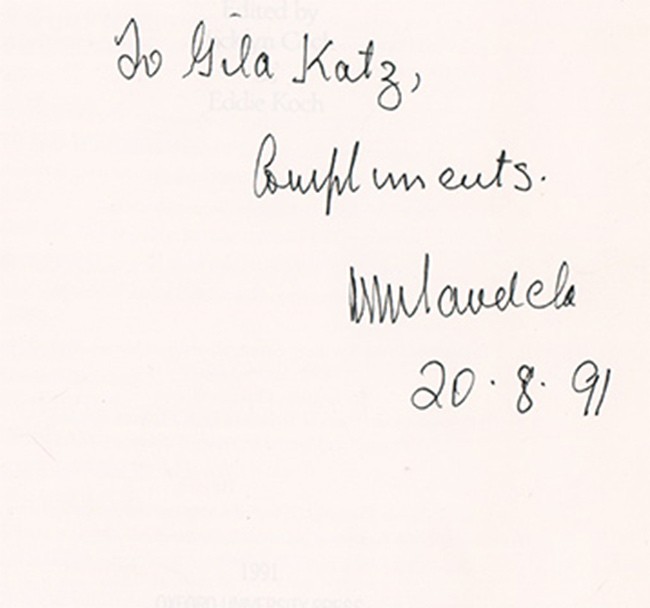 Edited by
Eddie Koch
To Gila Katz,
Compliments.
NMandela
20.8.91
1991
OXFORD UNIVERSITY PRESS